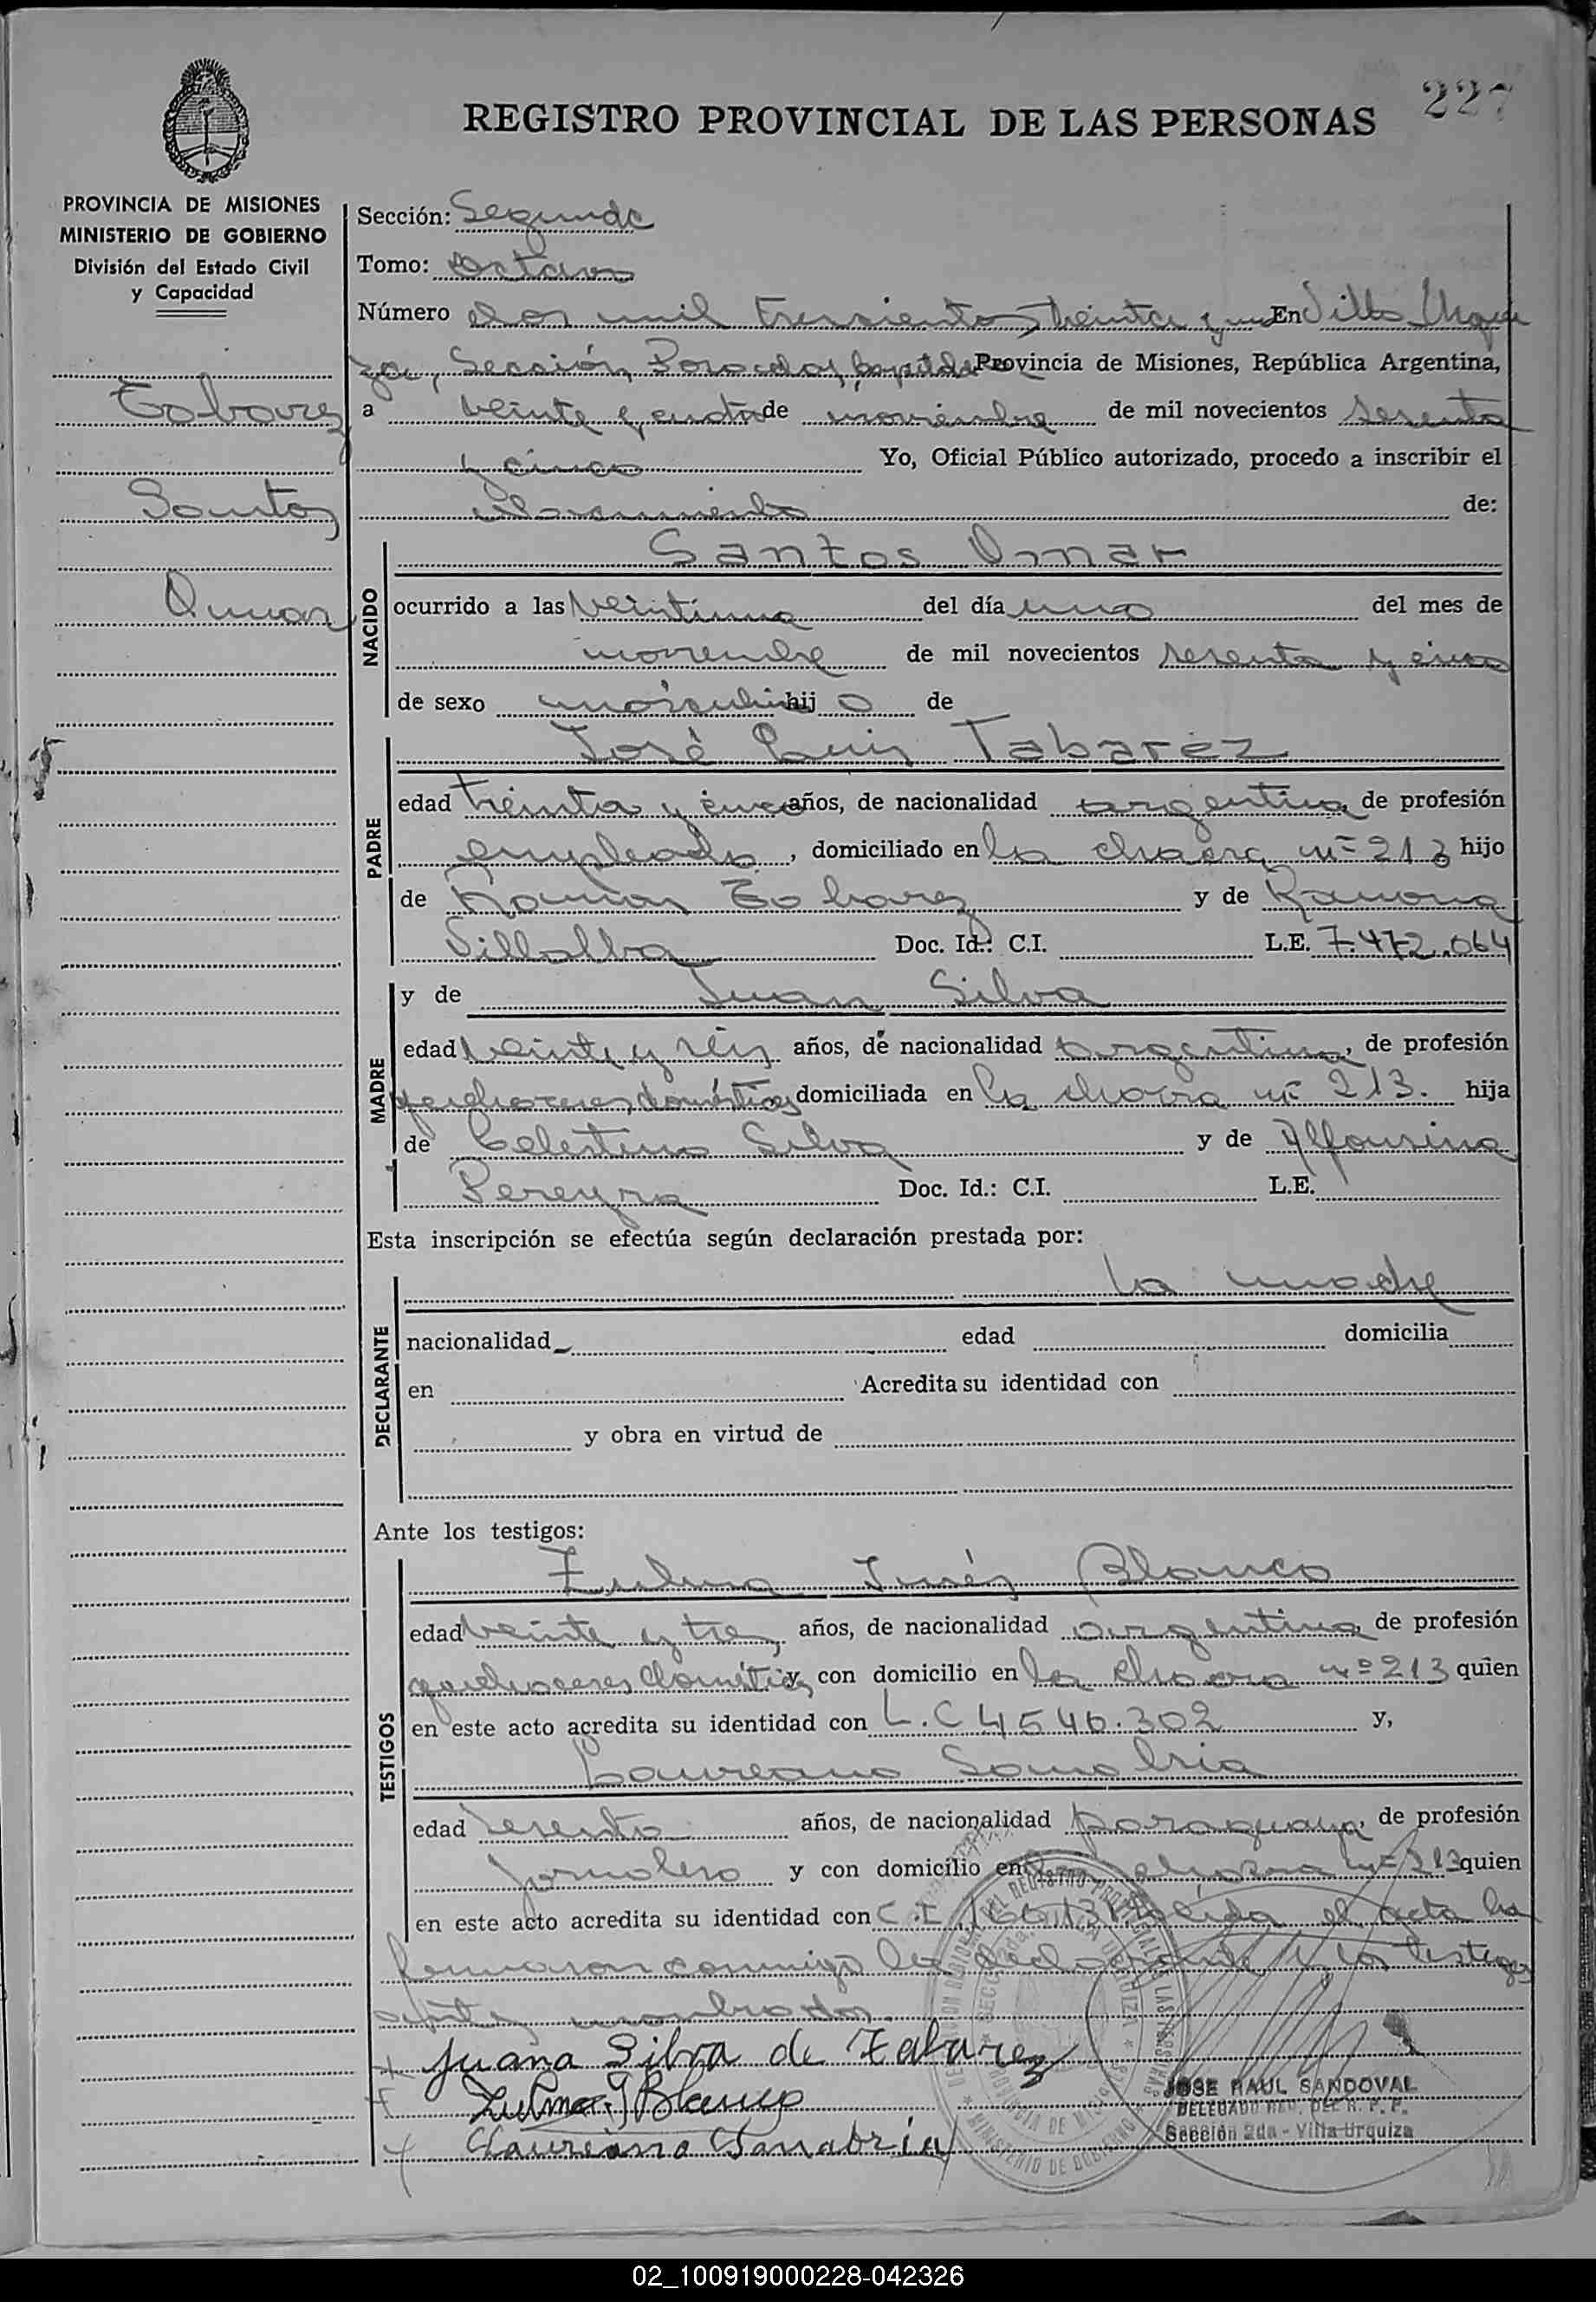 227
REGISTRO PROVINCIAL DE LAS PERSONAS
PROVINCIA DE MISIONES
MINISTERIO DE GOBIERNO
División del Estado Civil
y Capacidad
Tabarez
Santos
Omar
Sección: Segunda
Tomo: Octavo
Número dos mil tresciento treinta y uno En Villa Urqui
za, Sección Posadas, Capital de Provincia de Misiones, República Argentina,
a veinte y cuatro de noviembre de mil novecientos sesenta
y cinco Yo, Oficial Público autorizado, procedo a inscribir el
nacimiento de:
NACIDO
Santos Omar
ocurrido a las veintiuna del día uno del mes de
noviembre de mil novecientos sesenta y cinco
de sexo masculino hij o de
PADRE
José Luis Tabarez
edad treinta y cinco años, de nacionalidad argentina de profesión
empleado, domiciliado en la chacra nº 213 hijo
de Ramón Tabarez y de Ramona
Villalba Doc. Id.: C.I. L.E. 7.472.064
MADRE
y de Juan Silva
edad veinte y seis años, de nacionalidad argentina, de profesión
quehaceres domésticos domiciliada en la chacra nº 213. hija
de Celestino Silva y de Alfonsina
Pereyra Doc. Id.: C.I. L.E.
Esta inscripción se efectúa según declaración prestada por:
DECLARANTE
la madre
nacionalidad edad domicilia
en Acredita su identidad con
y obra en virtud de
Ante los testigos:
TESTIGOS
Zulma Inés Blanco
edad veinte y tres años, de nacionalidad argentina de profesión
quehaceres domésticos y con domicilio en la chacra nº 213 quien
en este acto acredita su identidad con L.C 4546.302 y,
Laureano Sanabria
edad sesenta años, de nacionalidad paraguaya, de profesión
jornalero y con domicilio en la chacra nº 213 quien
en este acto acredita su identidad con C.I. Leída el acta la
firmaron conmigo la declarante y los testigos
antes nombrados.
Juana Silva de Tabarez
Zulma I Blanco
Laureano Sanabria
JOSE RAUL SANDOVAL
DELEGADO R. P. P.
Sección 2da - Villa Urquiza
02_100919000228-042326